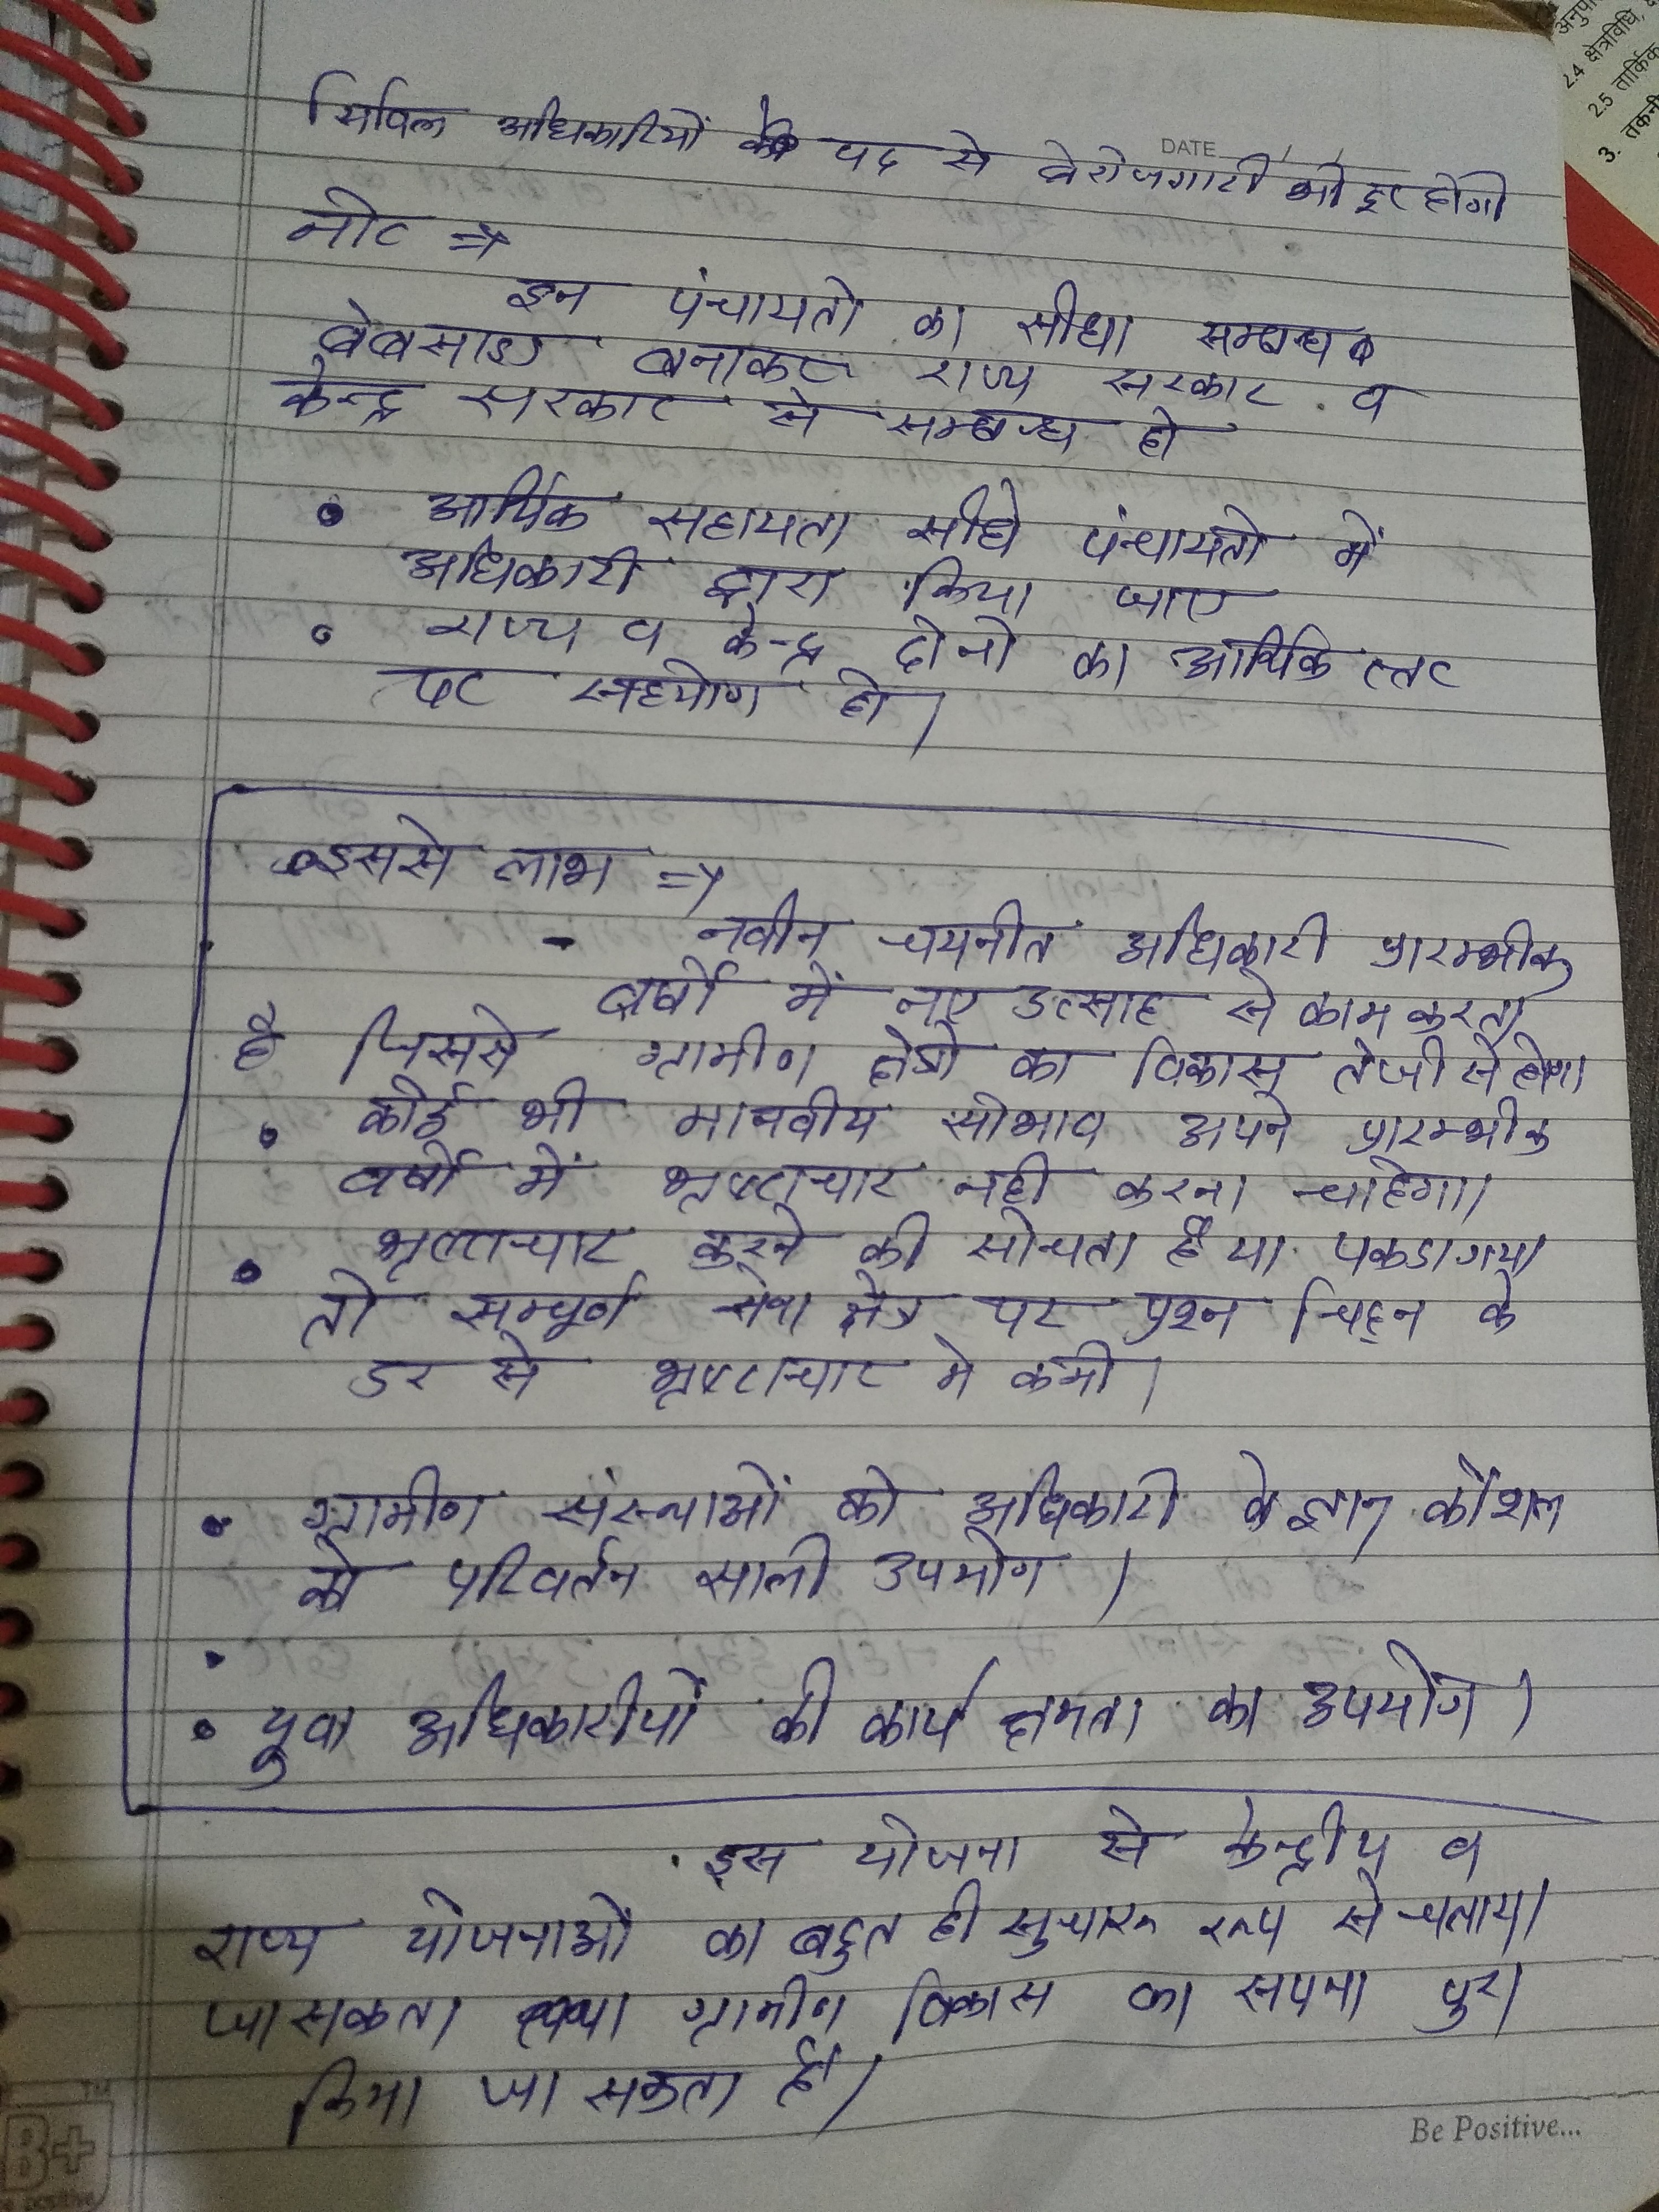 सिविल अधिकारियों के पद से बेरोजगारी भी दूर होगी
DATE / /
नोट ⇒
इन पंचायतो का सीधा सम्बन्ध
वेबसाइट बनाकर राज्य सरकार व
केन्द्र सरकार से सम्बन्ध हो
• आर्थिक सहायता सीधे पंचायतो में
अधिकारी द्वारा किया जाए
• राज्य व केन्द्र दोनो का आर्थिक स्तर
पर सहयोग हो।
• इससे लाभ ⇒
- नवीन चयनीत अधिकारी प्रारम्भीक
वर्षो में नए उत्साह से काम करता
है जिससे ग्रामीण क्षेत्रो का विकास तेजी से होगा
• कोई भी मानवीय सोभाव अपने प्रारम्भीक
वर्षो में भ्रष्टाचार नही करना चाहेगा।
• भ्रष्टाचार करने की सोचता है या पकडा गया
तो सम्पूर्ण सेवा क्षेत्र पर प्रश्न चिह्न के
डर से भ्रष्टाचार मे कमी।
• ग्रामीण संस्थाओं को अधिकारी के ज्ञान कौशल
को परिवर्तन साली उपयोग।
•
• युवा अधिकारीयों की कार्य क्षमता का उपयोग।
इस योजना से केन्द्रीय व
राज्य योजनाओं का बहुत ही सुचारू रूप से चलाया
जा सकता तथा ग्रामीण विकास का सपना पुरा
किया जा सकता है।
Be Positive...
B+
TM
अनुपा
2.4 क्षेत्रविधि,
2.5 तार्किक
3. तकनी